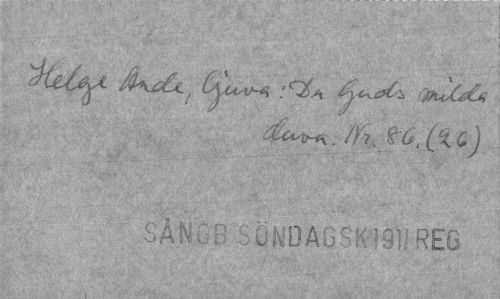 Helge Ande, ljuva: Du Guds milda
duva. Nr. 86. (26)
SÅNGB SÖNDAGSK 1911 REG